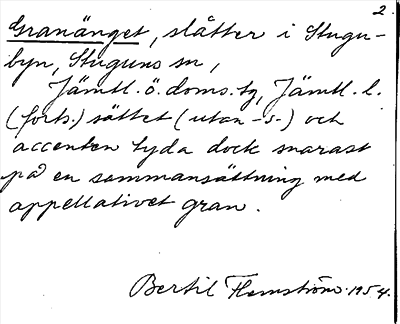 2.
Granänget, slåtter i Stugu-
byn, Stuguns sn,
Jämtl. ö. doms. tg, Jämtl. l.
(forts.) sättet (utan -s-) och
accenten tyda dock snarast
på en sammansättning med
appellativet gran.
Bertil Flemström. 1954.